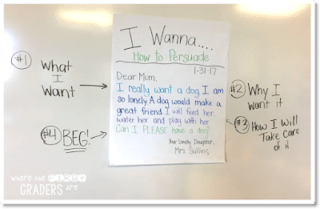 I Wanna....
How to Persuade
1-31-17
Dear Mom,
I really want a dog. I am
so lonely. A dog would make a
great friend. I will feed her
water her and play with her
Can I PLEASE have a dog?
Your Lonely Daughter,
Mrs. Sullins
#1
What
I
Want
#4 BEG!
#2 Why I
Want it
#3 How I Will
Take Care
of it
GRADERS